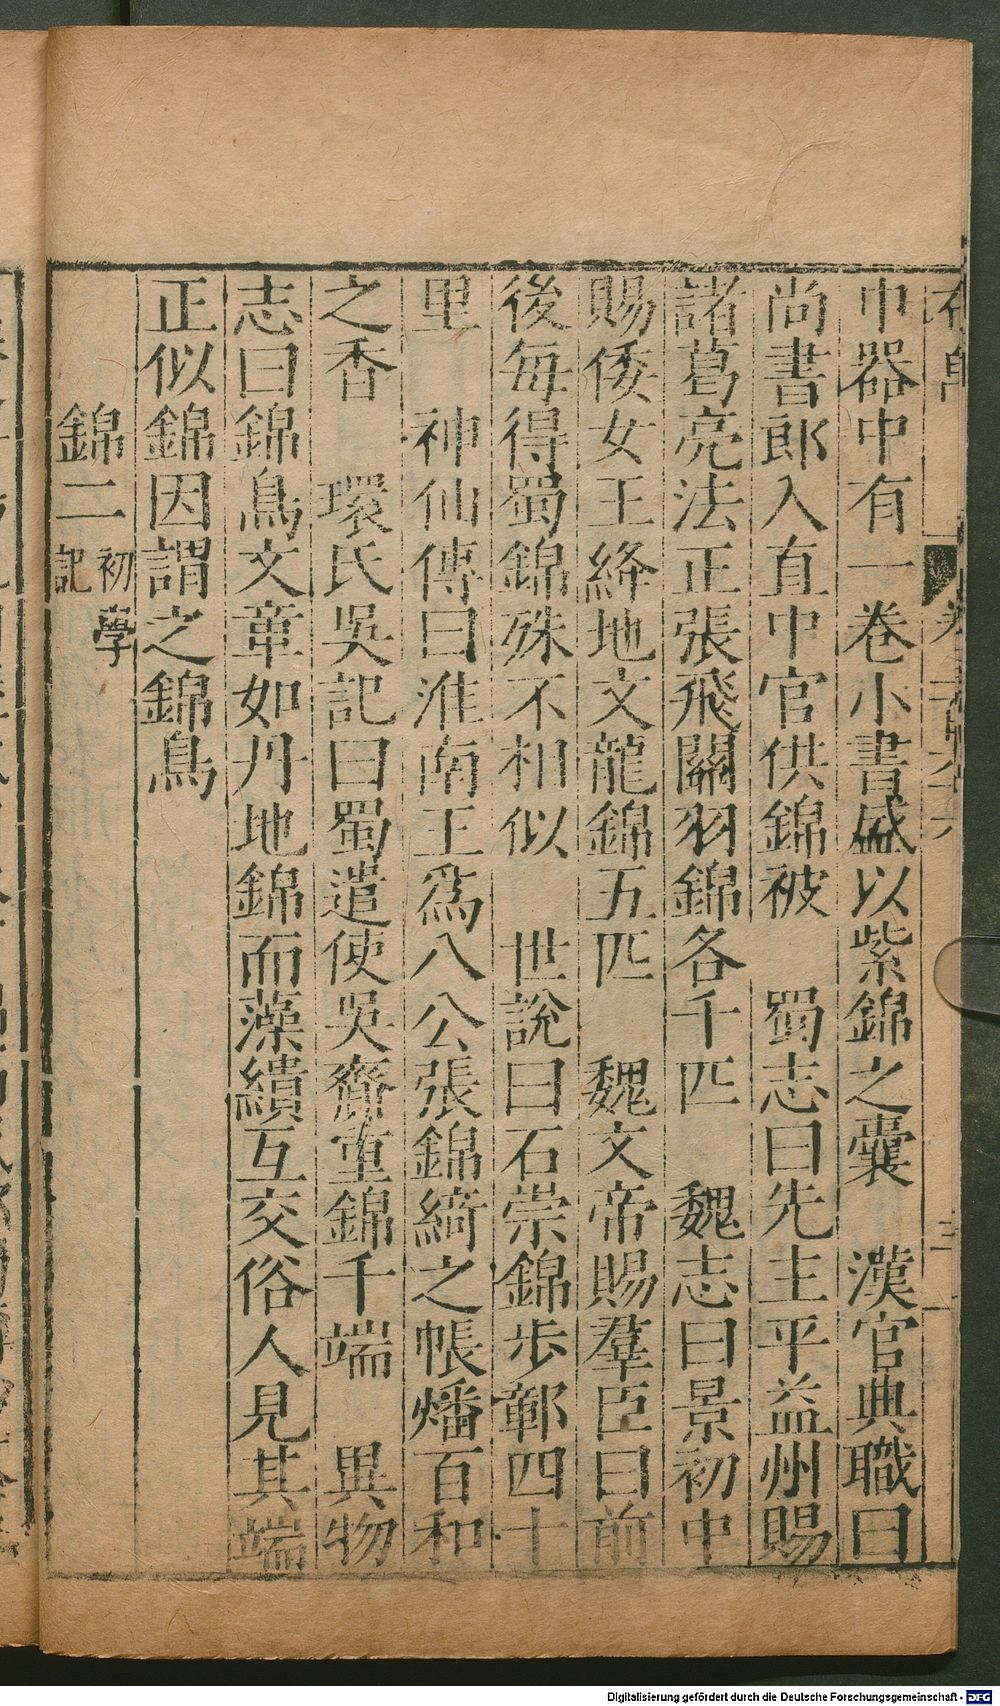 布帛 卷 三
巾器中有一卷小書盛以紫錦之囊 漢官典職曰
尚書郎入直中官供錦被 蜀志曰先主平益州賜
諸葛亮法正張飛關羽錦各千匹 魏志曰景初中
賜倭女王絳地文龍錦五匹 魏文帝賜羣臣曰前
後每得蜀錦殊不相似 世說曰石崇錦步鄣四十
里 神仙傳曰淮南王爲八公張錦綺之帳燔百和
之香 環氏吳記曰蜀遣使吳齎重錦千端 異物
志曰錦鳥文章如丹地錦而藻繢互交俗人見其端
正似錦因謂之錦鳥
錦二 初學記
Digitalisierung gefördert durch die Deutsche Forschungsgemeinschaft - DFG